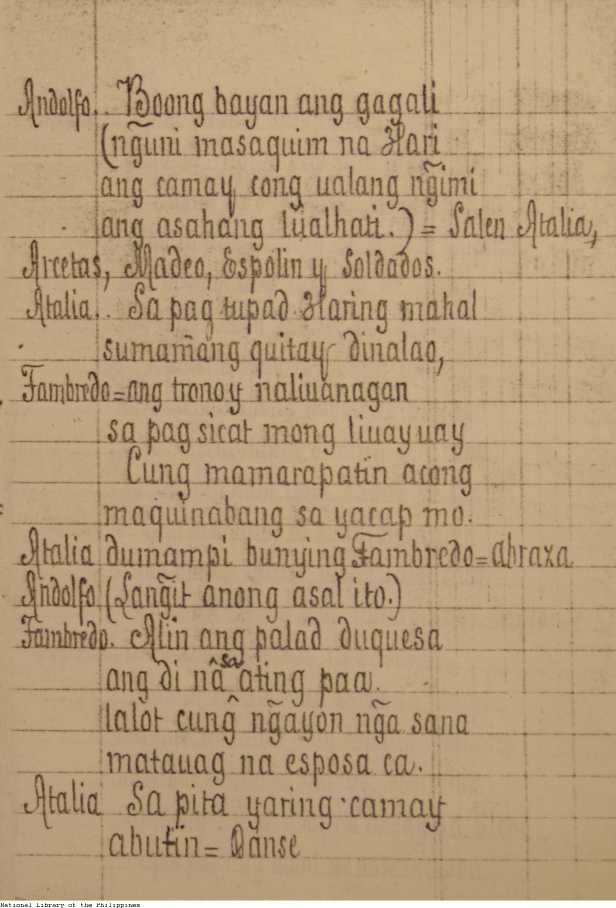 Andolfo.. Boong bayan ang gagali
(ng̃uni masaquim na Hari
ang camay cong ualang ng̃imi
ang asahang lualhati.) = Salen Atalia,
Arcetas, Madeo, Espolin y Soldados.
Atalia.. Sa pag tupad Haring mahal
sumamang quitay dinalao,
Fambredo=ang tronoy naliuanagan
sa pag sicat mong liuayuay
Cung mamarapatin acong
maquinabang sa yacap mo.
Atalia dumampi bunying Fambredo=abraza
Andolfo (Lang̃it anong asal ito.)
Fambredo. Alin ang palad duquesa
ang di na sa ating paa.
lalot cung ng̃ayon ng̃a sana
matauag na esposa ca.
Atalia Sa pita yaring camay
abutin= Danse
National Library of the Philippines